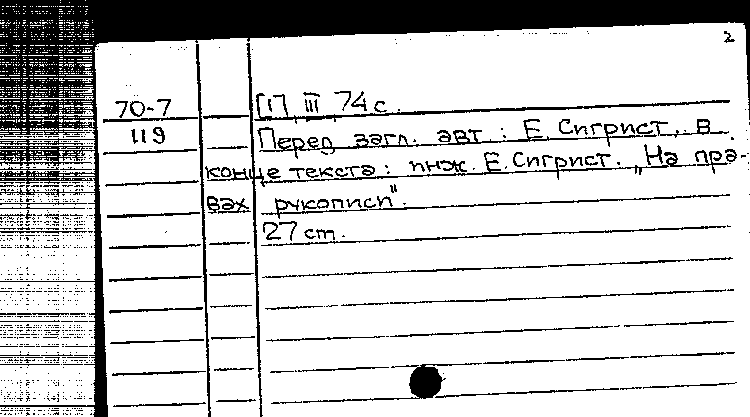 2
70-7 [1], III, 74 с.
119 Перед загл. авт.: Е. Сигрист, в
конце текста: инж. Е. Сигрист. „На пра-
вах рукописи".
27 cm.